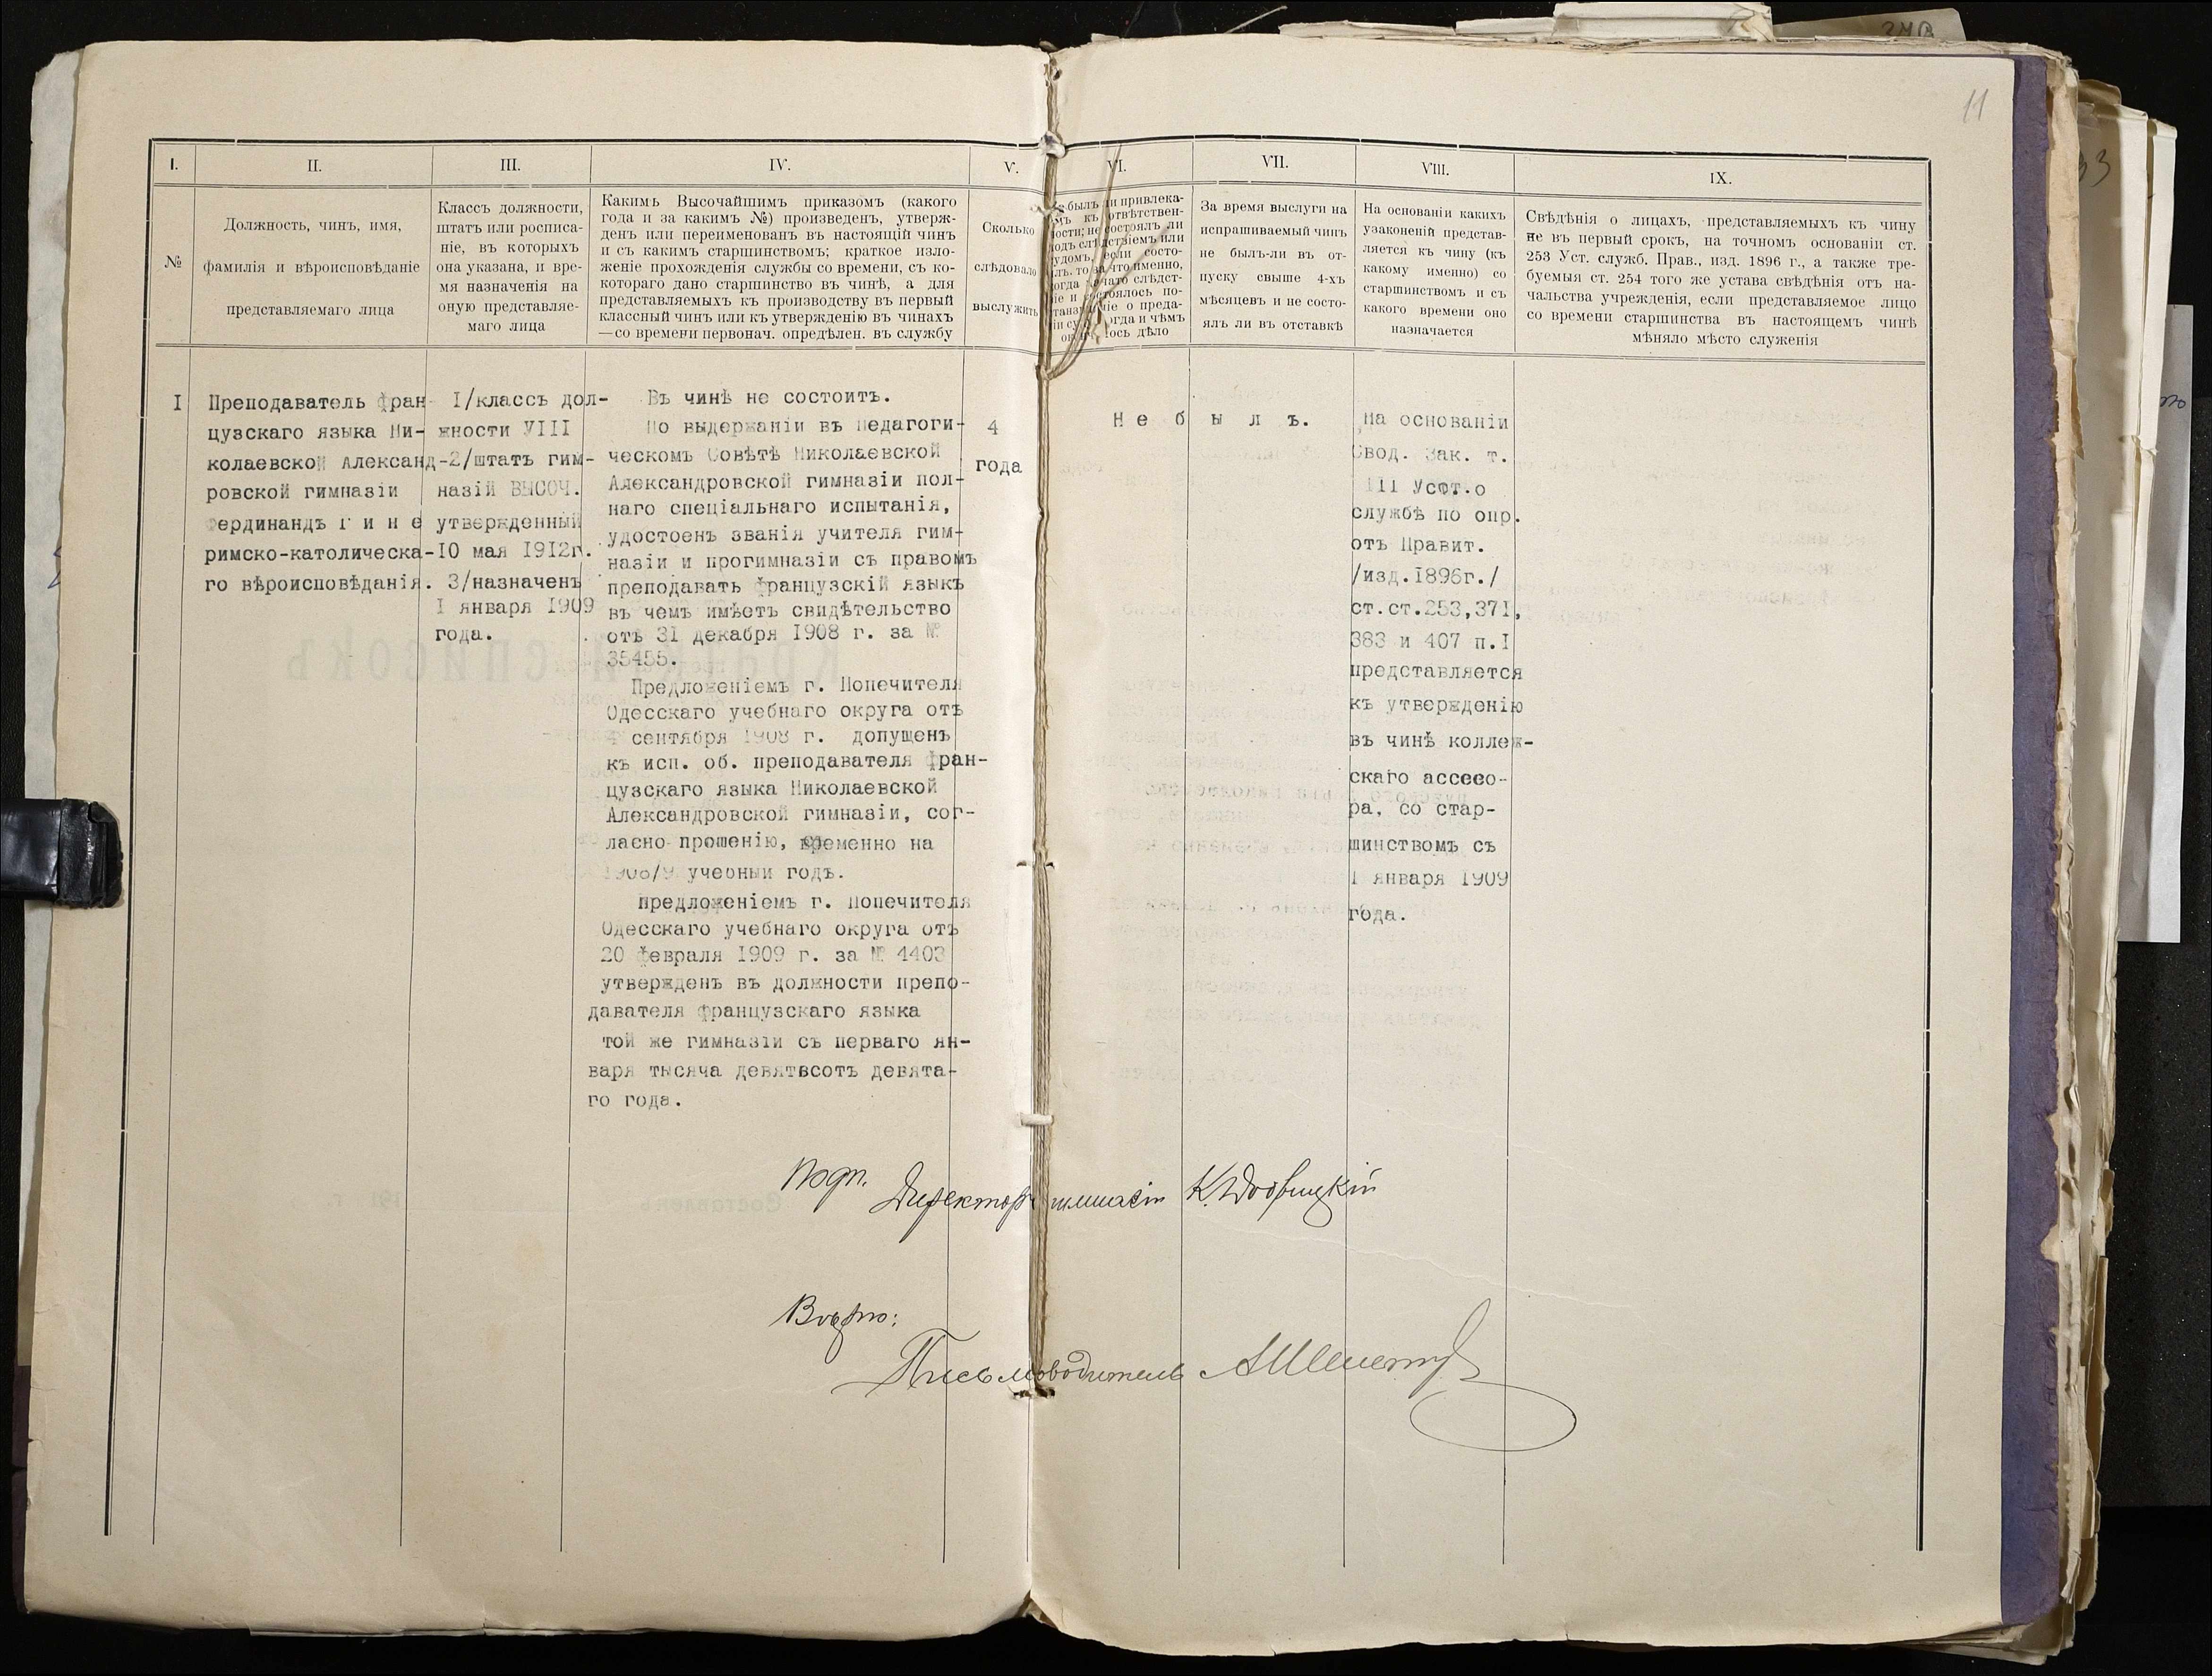 11
I.
№
II.
Должность, чинъ, имя,
фамилія и вѣроисповѣданіе
представляемаго лица
III.
Классъ должности,
штатъ или росписа-
ніе, въ которыхъ
она указана, и вре-
мя назначенія на
оную представляе-
маго лица
IV.
Какимъ Высочайшимъ приказомъ (какого
года и за какимъ №) произведенъ, утверж-
денъ или переименованъ въ настоящій чинъ
и съ какимъ старшинствомъ; краткое изло-
женіе прохожденія службы со времени, съ ко-
котораго дано старшинство въ чинѣ, а для
представляемыхъ къ производству въ первый
классный чинъ или къ утвержденію въ чинахъ
—со времени первонач. опредѣлен. въ службу
V.
Сколько
слѣдовало
выслужить
VI.
былъ ли привлека-
къ отвѣтствен-
ности; не состоялъ ли
подъ слѣдствіемъ или
судомъ, если состо-
то за что именно,
когда начато слѣдст-
и состоялось по-
о преда-
когда и чѣмъ
дѣло
VII.
За время выслуги на
испрашиваемый чинъ
не былъ-ли въ от-
пуску свыше 4-хъ
мѣсяцевъ и не состо-
ялъ ли въ отставкѣ
VIII.
На основаніи какихъ
узаконеній представ-
ляется къ чину (къ
какому именно) со
старшинствомъ и съ
какого времени оно
назначается
IX.
Свѣдѣнія о лицахъ, представляемыхъ къ чину
не въ первый срокъ, на точномъ основаніи ст.
253 Уст. служб. Прав., изд. 1896 г., а также тре-
буемыя ст. 254 того же устава свѣдѣнія отъ на-
чальства учрежденія, если представляемое лицо
со времени старшинства въ настоящемъ чинѣ
мѣняло мѣсто служенія
I
Преподаватель фран-
цузскаго языка Ни-
колаевской Александ-
ровской гимназіи
Фердинандъ Г и н е
римско-католическа-
го вѣроисповѣданія.
I/классъ дол-
жности УIII
2/штатъ гим-
назій ВЫСОЧ.
утвержденный
IO мая I9I2г.
3/назначенъ
I января I909
года.
Въ чинѣ не состоитъ.
По выдержаніи въ Педагоги-
ческомъ Совѣтѣ Николаевской
Александровской гимназіи пол-
наго спеціальнаго испытанія,
удостоенъ званія учителя гим-
назіи и прогимназіи съ правомъ
преподавать французскій языкъ
въ чемъ имѣетъ свидѣтельство
отъ 3I декабря I908 г. за №
35455.
Предложеніемъ г. Попечителя
Одесскаго учебнаго округа отъ
4 сентября I908 г. допущенъ
къ исп. об. преподавателя фран-
цузскаго языка Николаевской
Александровской гимназіи, сог-
ласно прошенію, временно на
I908/9 учебный годъ.
Предложеніемъ г. Попечителя
Одесскаго учебнаго округа отъ
20 февраля I909 г. за № 4403
утвержденъ въ должности препо-
давателя французскаго языка
той же гимназіи съ перваго ян-
варя тысяча девятьсотъ девята-
го года.
4
года
Н е б ы л ъ.
На основаніи
Свод. Зак. т.
III Усфт.о
службѣ по опр.
отъ Правит.
/изд.I896г./
ст.ст.253,37I,
383 и 407 п.I
представляется
къ утвержденію
въ чинѣ коллеж-
скаго ассесо-
ра, со стар-
шинствомъ съ
I января I909
года.
Подп. Директоръ гимназіи К.
Вѣрно:
Письмоводитель